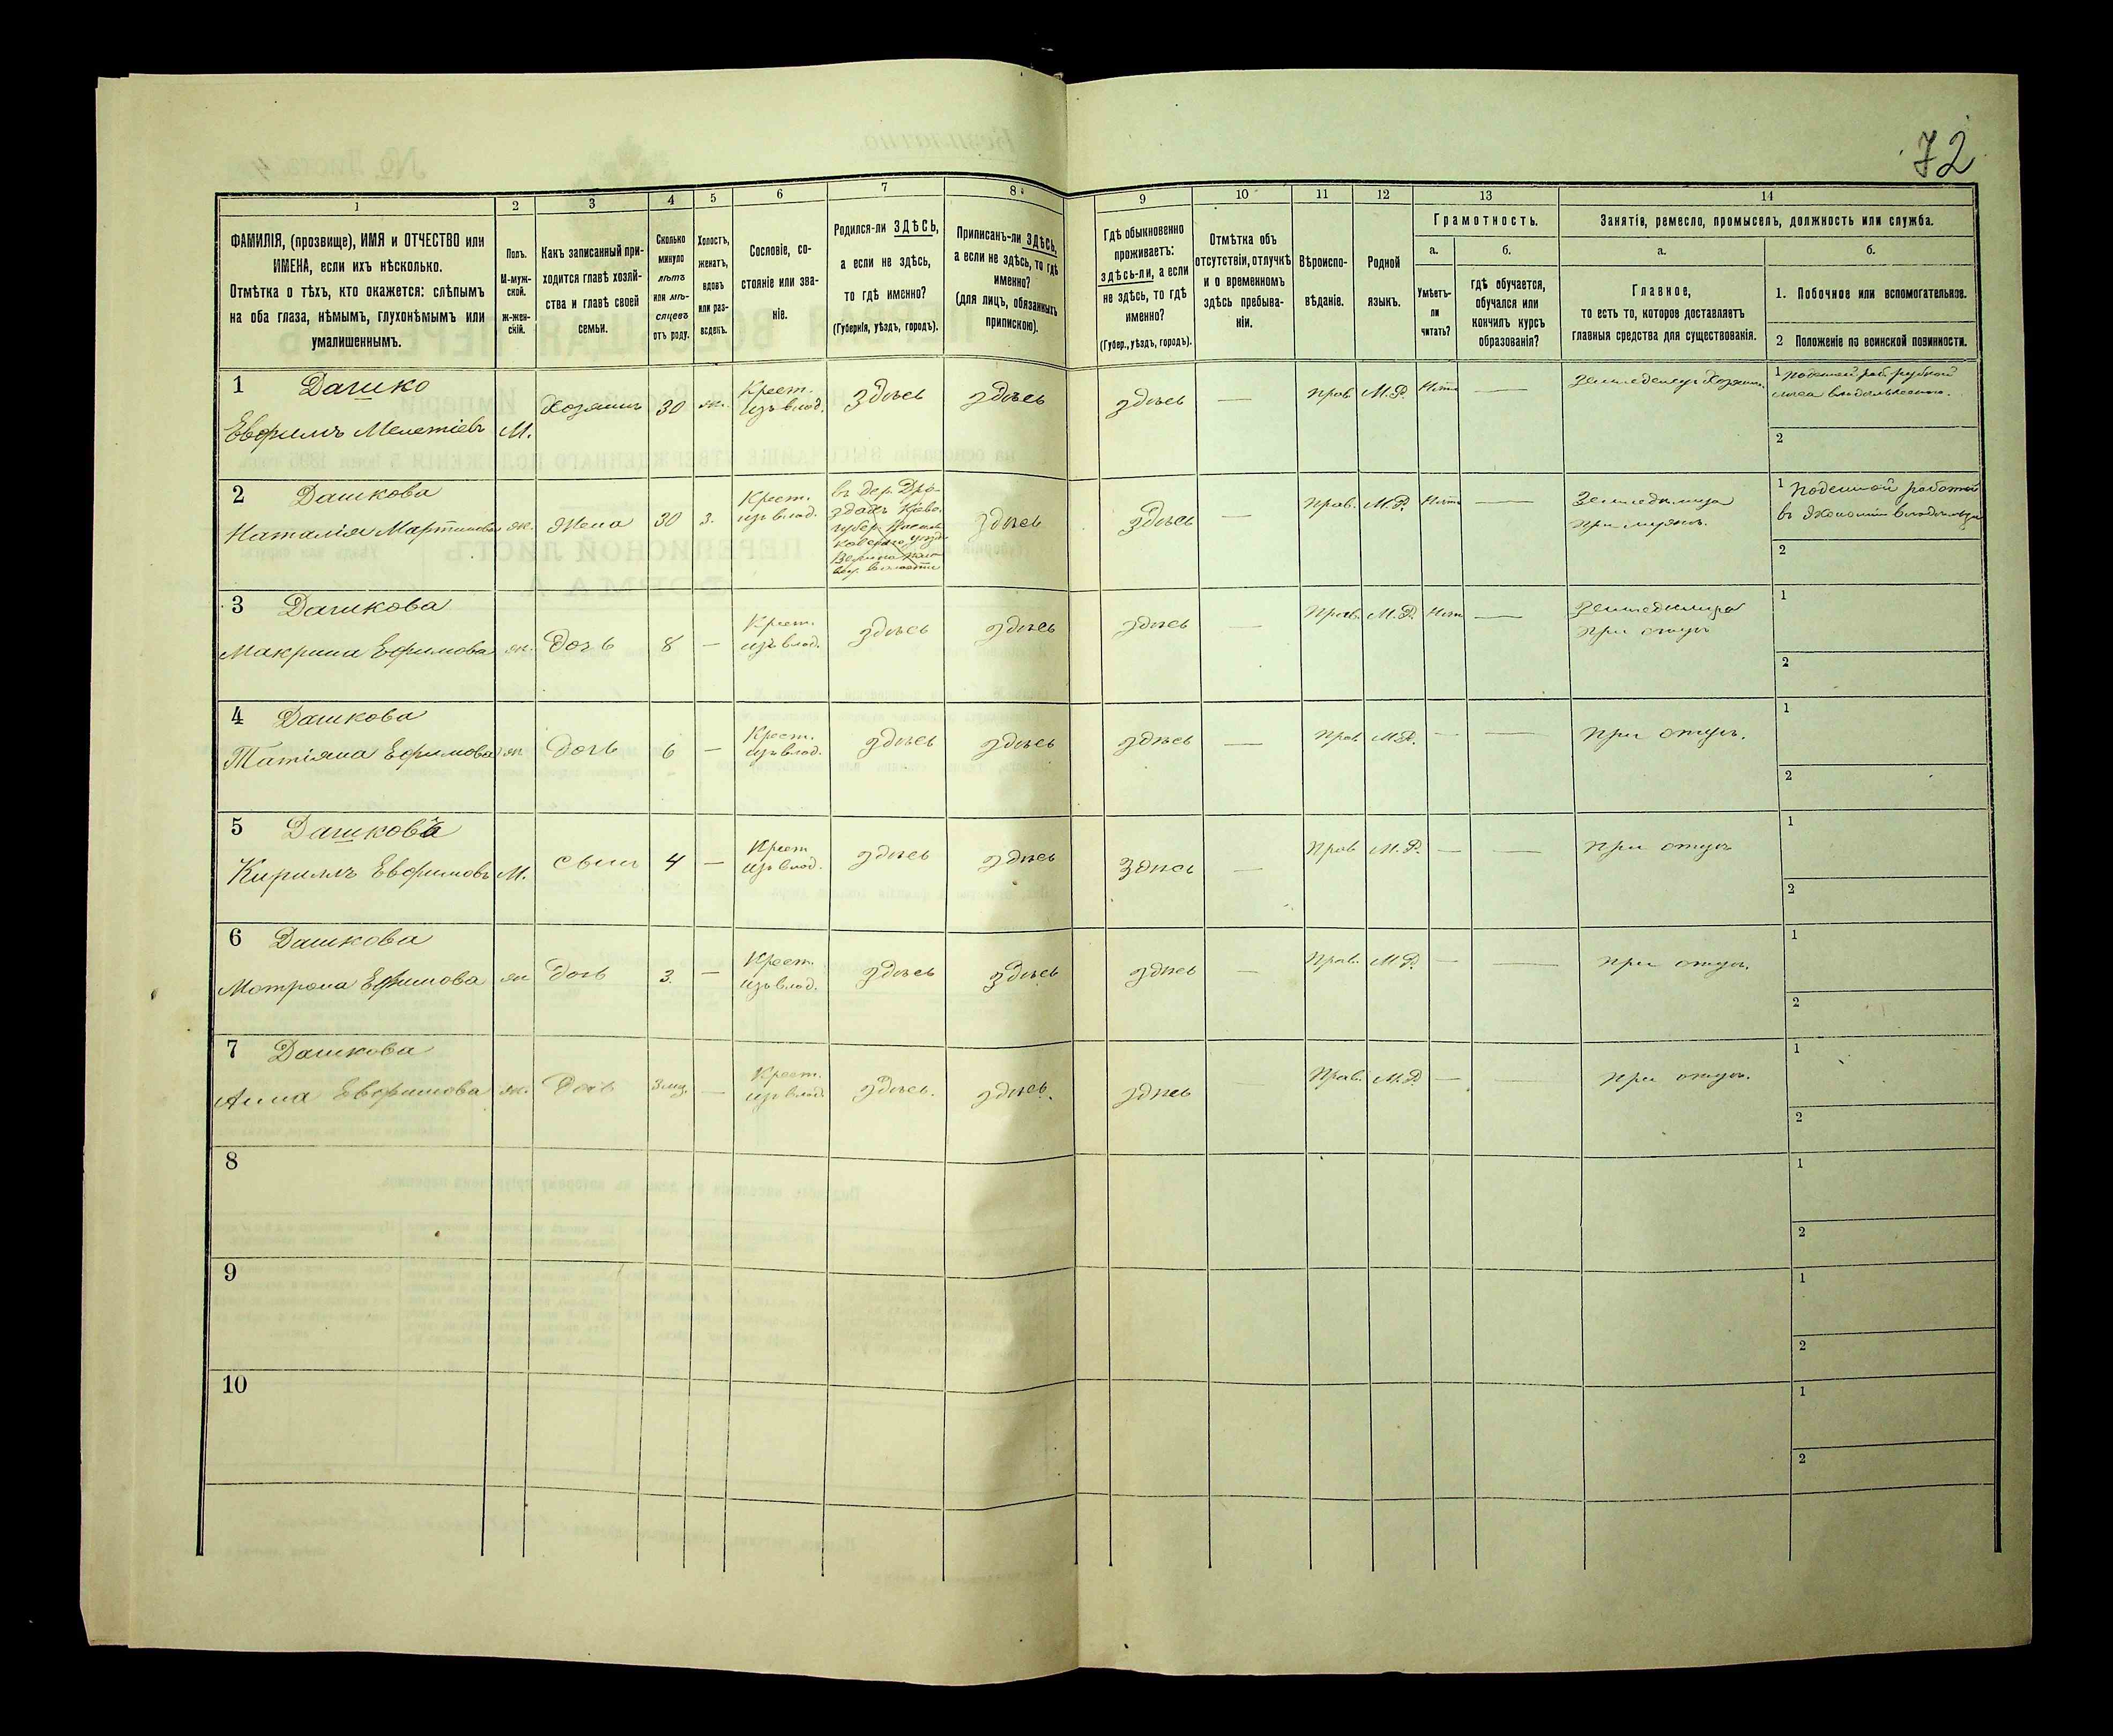 72
1
2
3
4
5
6
7
8
9
10
11
12
13
14
ФАМИЛІЯ, (прозвище), ИМЯ и ОТЧЕСТВО или
ИМЕНА, если ихъ нѣсколько.
Отмѣтка о тѣхъ, кто окажется: слѣпымъ
на оба глаза, нѣмымъ, глухонѣмымъ или
умалишеннымъ.
Полъ.
М-муж-
ской.
ж-жен-
скій.
Какъ записанный при-
ходится главѣ хозяй-
ства и главѣ своей
семьи.
Сколько
минуло
лѣтъ
или мѣ-
сяцевъ
отъ роду.
Холостъ,
женатъ,
вдовъ
или раз-
веденъ.
Сословіе, со-
стояніе или зва-
ніе.
Родился-ли ЗДѢСЬ,
а если не здѣсь,
то гдѣ именно?
(Губернія, уѣздъ, городъ).
Приписанъ-ли ЗДѢСЬ,
а если не здѣсь, то гдѣ
именно?
(для лицъ, обязанныхъ
припискою).
Гдѣ обыкновенно
проживаетъ:
здѣсь-ли, а если
не здѣсь, то гдѣ
именно?
(Губер., уѣздъ, городъ).
Отмѣтка объ
отсутствіи, отлучкѣ
и о временномъ
здѣсь пребыва-
ніи.
Вѣроиспо-
вѣданіе.
Родной
языкъ.
Грамотность.
а.
Умѣетъ-
ли
читать?
б.
гдѣ обучается,
обучался или
кончилъ курсъ
образованія?
Занятія, ремесло, промыселъ, должность или служба.
а.
Главное,
то есть то, которое доставляетъ
главныя средства для существованія.
б.
1. Побочное или вспомогательное.
2 Положеніе по воинской повинности.
1 Дашко
Евфимъ Мелетіевъ
М.
Хозяинъ
30
ж.
Крест.
изъ влад.
здѣсь
здѣсь
здѣсь
—
прав
М.Р.
Нѣтъ
—
Земледелецъ Хозяинъ
1
2
2 Дашкова
Наталія Мартинова
ж.
Жена
30
з.
Крест.
изъ влад.
въ дер.
здѣсь
здѣсь
—
Прав.
М.Р.
Нѣтъ
—
Земледѣлица
при мужѣ.
1 Поденной работой
въ Экономіи владѣльца
2
3 Дашкова
Макрина Ефимова
ж.
Дочь
8
—
Крест.
изъ влад.
здѣсь
здѣсь
здѣсь
—
Прав.
М.Р.
Нѣтъ
—
Земледѣлица
при отцѣ
1
2
4 Дашкова
Татіяна Ефимова
ж
Дочь
6
—
Крест.
изъ влад.
здѣсь
здѣсь
здѣсь
—
Прав.
М.Р.
—
—
при отцѣ.
1
2
5 Дашковъ
Кириллъ Евфимовъ
М.
сынъ
4
—
Крест
изъ влад.
здѣсь
здѣсь
Здѣсь
—
Прав
М.Р.
—
—
при отцѣ
1
2
6 Дашкова
Мотрона Ефимова
ж
Дочь
3.
—
Крест.
изъ влад.
здѣсь
здѣсь
здѣсь
—
Прав.
М.Р.
—
—
при отцѣ.
1
2
7 Дашкова
Анна Евфимова
ж.
Дочь
3 мц.
—
Крест.
изъ влад.
здѣсь.
здѣсь.
здѣсь
—
Прав.
М.Р
—
—
при отцѣ.
1
2
8
1
2
9
1
2
10
1
2